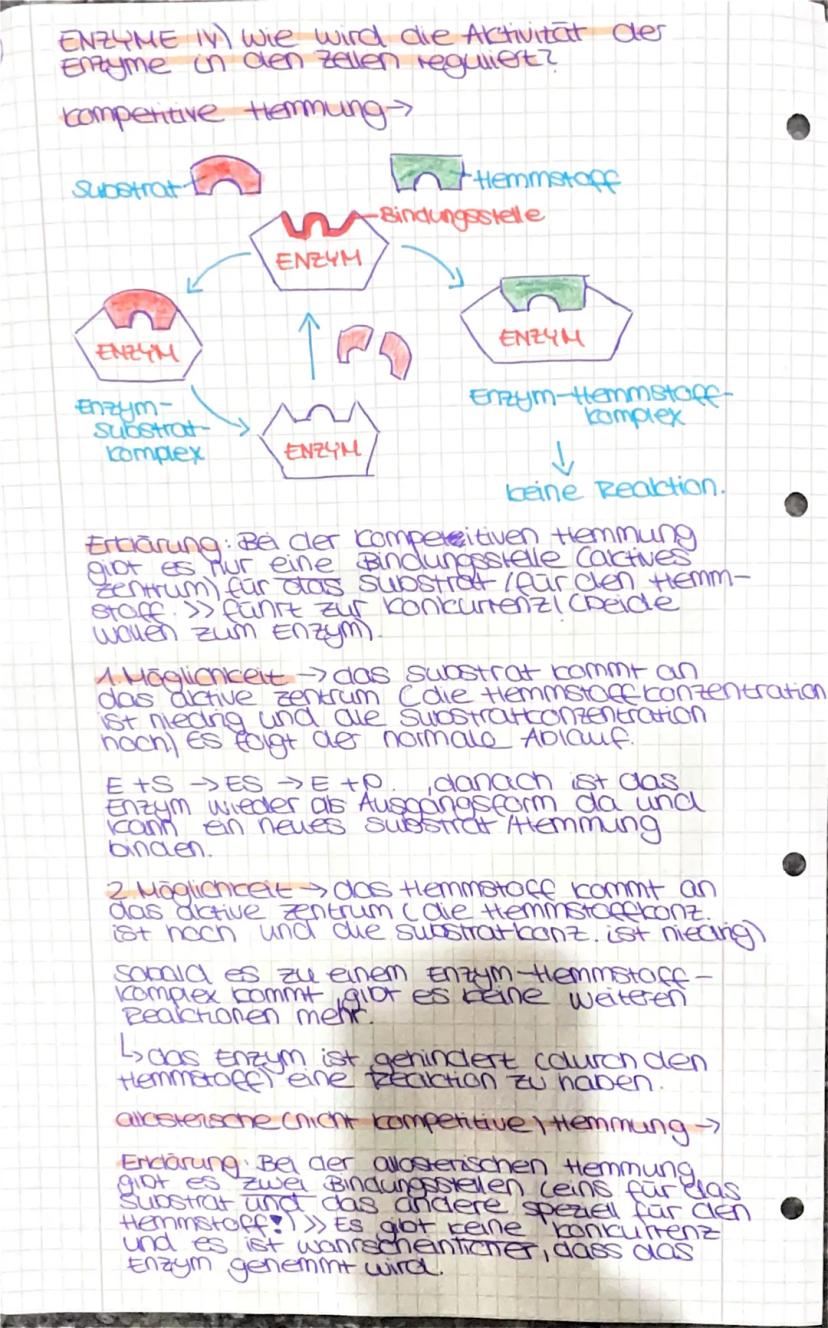 ENZYME IV) Wie wird die Aktivität der
Enzyme in den Zellen reguliert?
kompetitive Hemmung→
Substrat
Hemmstoff
Bindungsstelle
ENZYM
ENZYM
ENZYM
Enzym-
Substrat-
komplex
ENZYM
Enzym-Hemmstoff-
komplex
↓
keine Reaktion.
Erklärung: Bei der kompetitiven Hemmung
gibt es nur eine Bindungsstelle (actives
Zentrum) für das Substrat / für den Hemm-
stoff. >> führt zur Konkurrenz! (beide
wollen zum Enzym).
1. Möglichkeit → das Substrat kommt an
das aktive Zentrum (die Hemmstoffkonzentration
ist niedrig und die Substratkonzentration
hoch) es folgt der normale Ablauf.
E + S → ES → E + P. , danach ist das
Enzym wieder als Ausgangsform da und
kann ein neues Substrat/Hemmung
binden.
2. Möglichkeit → das Hemmstoff kommt an
das aktive Zentrum (die Hemmstoffkonz.
ist hoch und die Substratkonz. ist niedrig)
Sobald es zu einem Enzym-Hemmstoff-
komplex kommt, gibt es keine weiteren
Reaktionen mehr.
↳ das Enzym ist gehindert (durch den
Hemmstoff) eine Reaction zu haben.
allosterische (nicht kompetitive) Hemmung →
Erklärung: Bei der allosterischen Hemmung
gibt es zwei Bindungsstellen (eins für das
Substrat und das andere speziell für den
Hemmstoff!) >> Es gibt keine Konkurrenz
und es ist wahrscheinlicher, dass das
Enzym gehemmt wird.